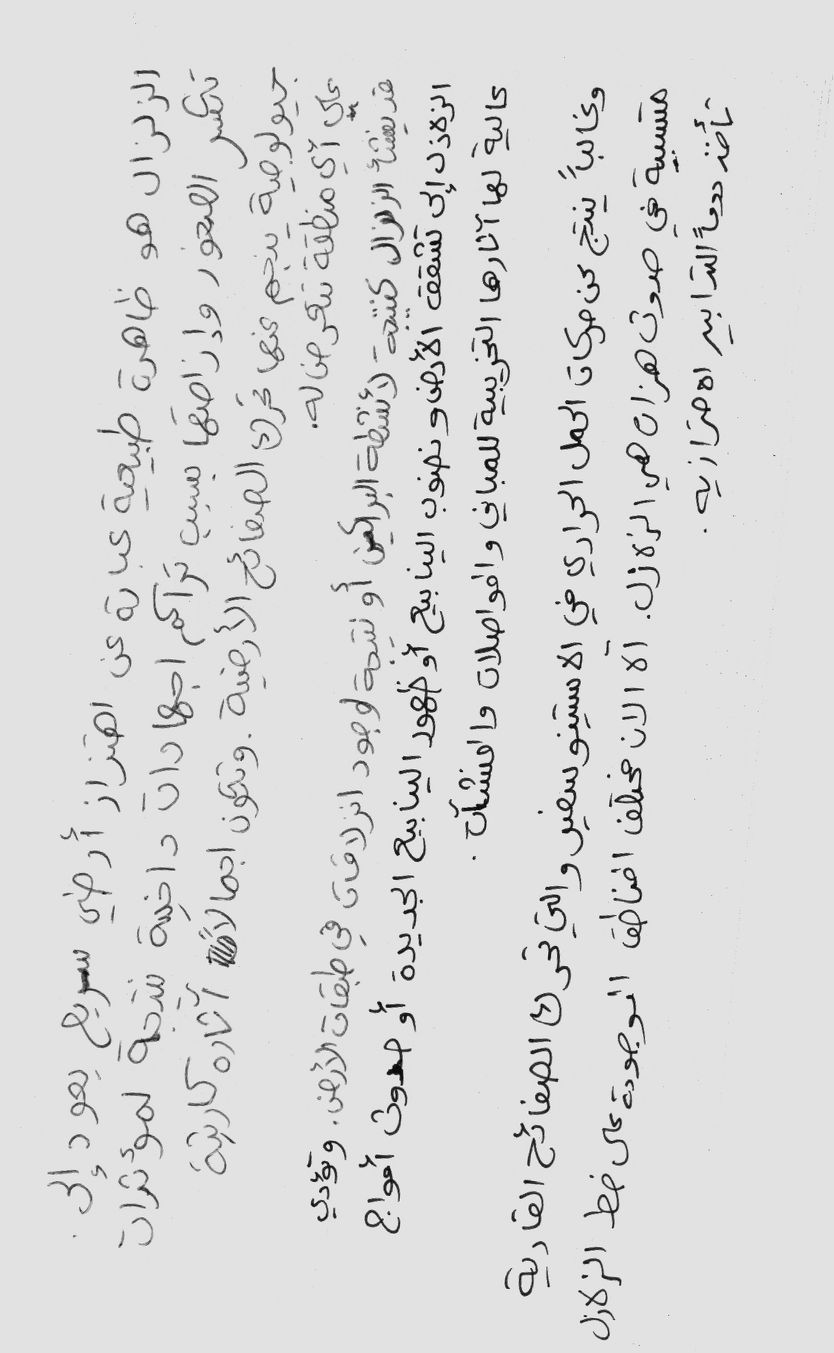 الزلزال هو ظاهرة طبيعية عبارة عن اهتزاز أرضي سريع يعود إلى
تكسر الصخور وإزاحتها بسبب تراكم اجهادات داخلية نتيجة لمؤثرات
جيولوجية ينجم عنها تحرك الصفائح الأرضية. وتكون اجمالا آثاره كارثية
على أي منطقة تتعرض له.
قد ينشأ الزلزال كنتيجة لأنشطة البراكين أو نتيجة لوجود انزلاقات في طبقات الأرض. وتؤدي
الزلازل إلى تشقق الأرض و نضوب الينابيع أو ظهور الينابيع الجديدة أو حدوث أمواج
عالية لها آثارها التخريبية للمباني والمواصلات والمنشآت.
وغالباً ينتج عن حركات الحمل الحراري في الاستينوسفير والتي تحرك الصفائح القارية
متسببة في حدوث هزات هي الزلازل. الان مختلف المناطق الموجودة على خط الزلازل
تأخذ دوماً التدابير الاحترازية.